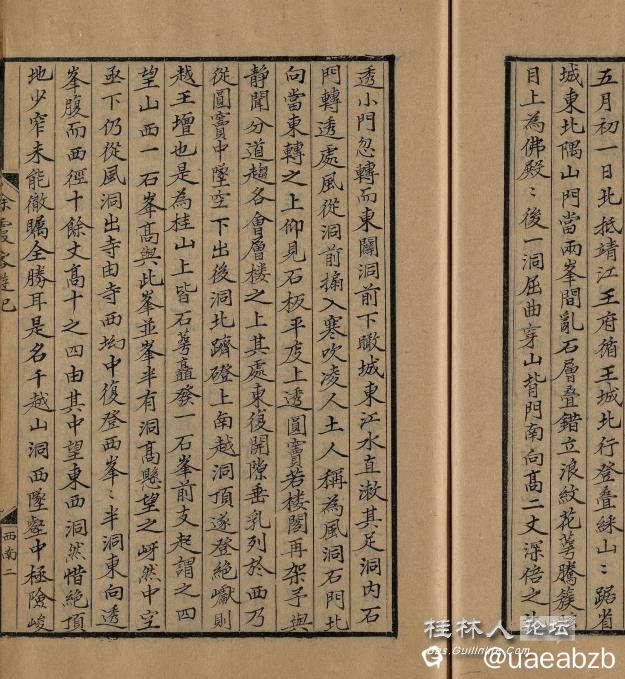 五月初一日北抵靖江王府循王城北行登疊綵山〻踞省
城東北隅山門當兩峯間亂石層疊錯立浪紋花萼騰簇
目上為佛殿〻後一洞屈曲穿山背門南向高二丈深倍之
透小門忽轉而東闢洞前下瞰城東江水直漱其足洞內石
門轉透處風從洞前搧入寒吹凌人土人稱為風洞石門北
向當東轉之上仰見石板平庋上透圓竇若樓閣再架予與
靜聞分道趨各會層楼之上其處東復開隙垂乳列於西乃
從圓竇中墜空下出後洞北躋磴上南越洞頂遂登絕巘則
越王壇也是為桂山上皆石萼矗發一石峯前支起謂之四
望山西一石峯高與此峯並峯半有洞高懸望之岈然中空
亟下仍從風洞出寺由寺西坳中復登西峯〻半洞東向透
峯腹而西徑十餘丈高十之四由其中望東西洞然惜絕頂
地少窄未能徹矚全勝耳是名千越山洞西墜壑中極險峻
徐霞客遊記
西南二
桂林人论坛
bbs.Guilinlife.com
@uaeabzb